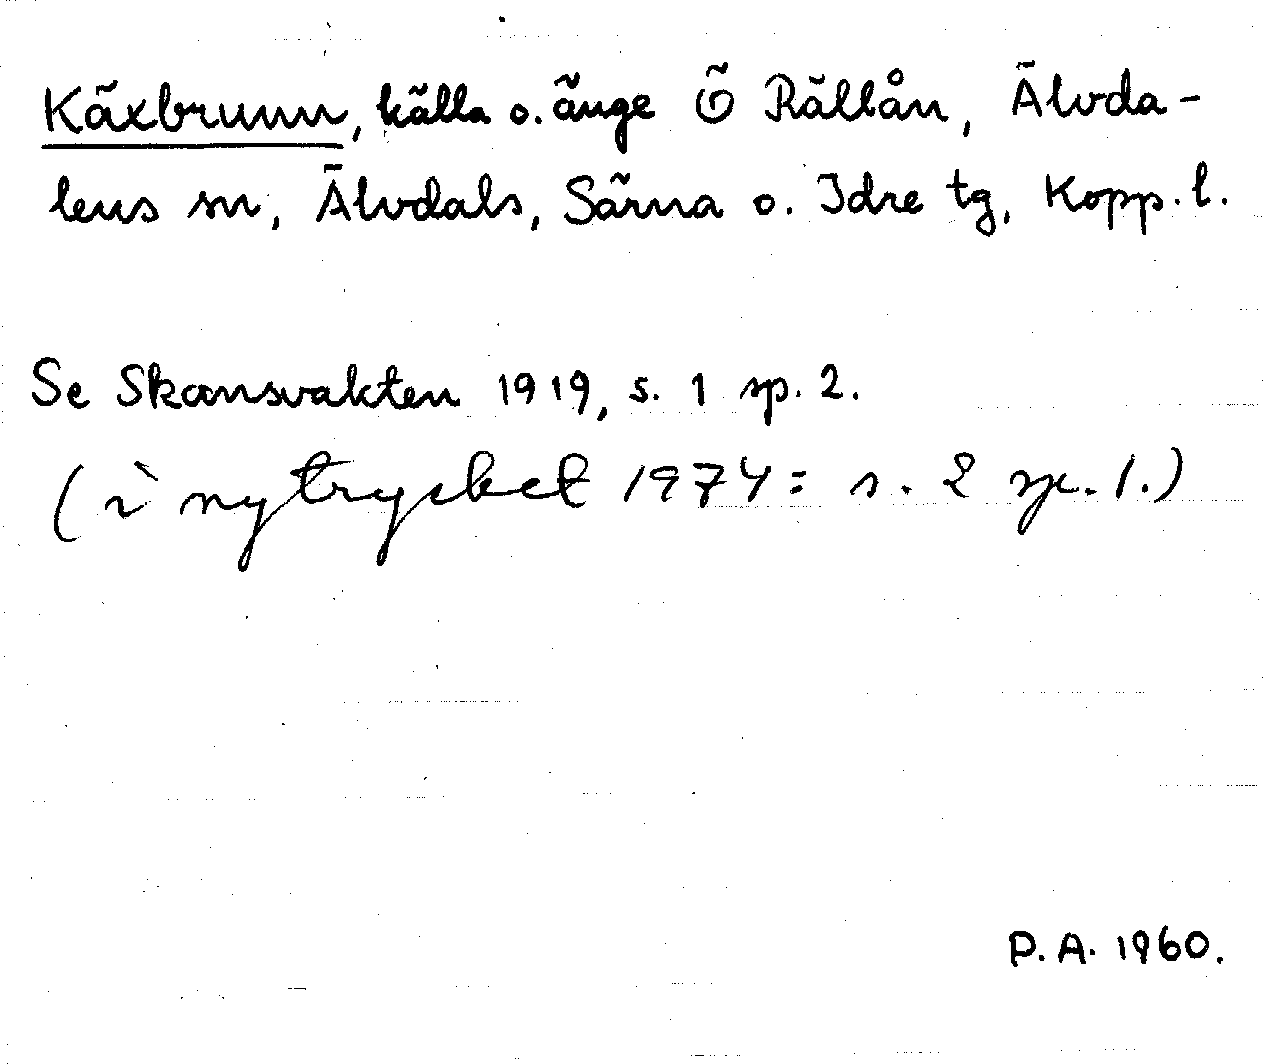 Käxbrunn, källa o. änge Ö Rällån, Älvda-
lens sn, Älvdals, Särna o. Idre tg, Kopp. l.
Se Skansvakten 1919, s. 1 sp. 2.
(i nytrycket 1974: s. 2 sp. 1.)
P. A. 1960.